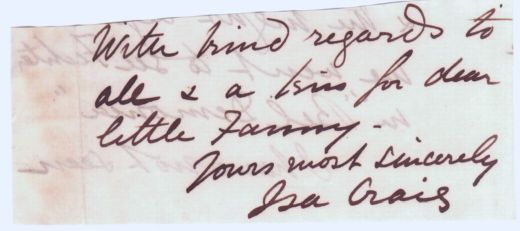 With kind regards to
all & a kiss for dear
little Fanny -
Yours most sincerely
Isa Craig